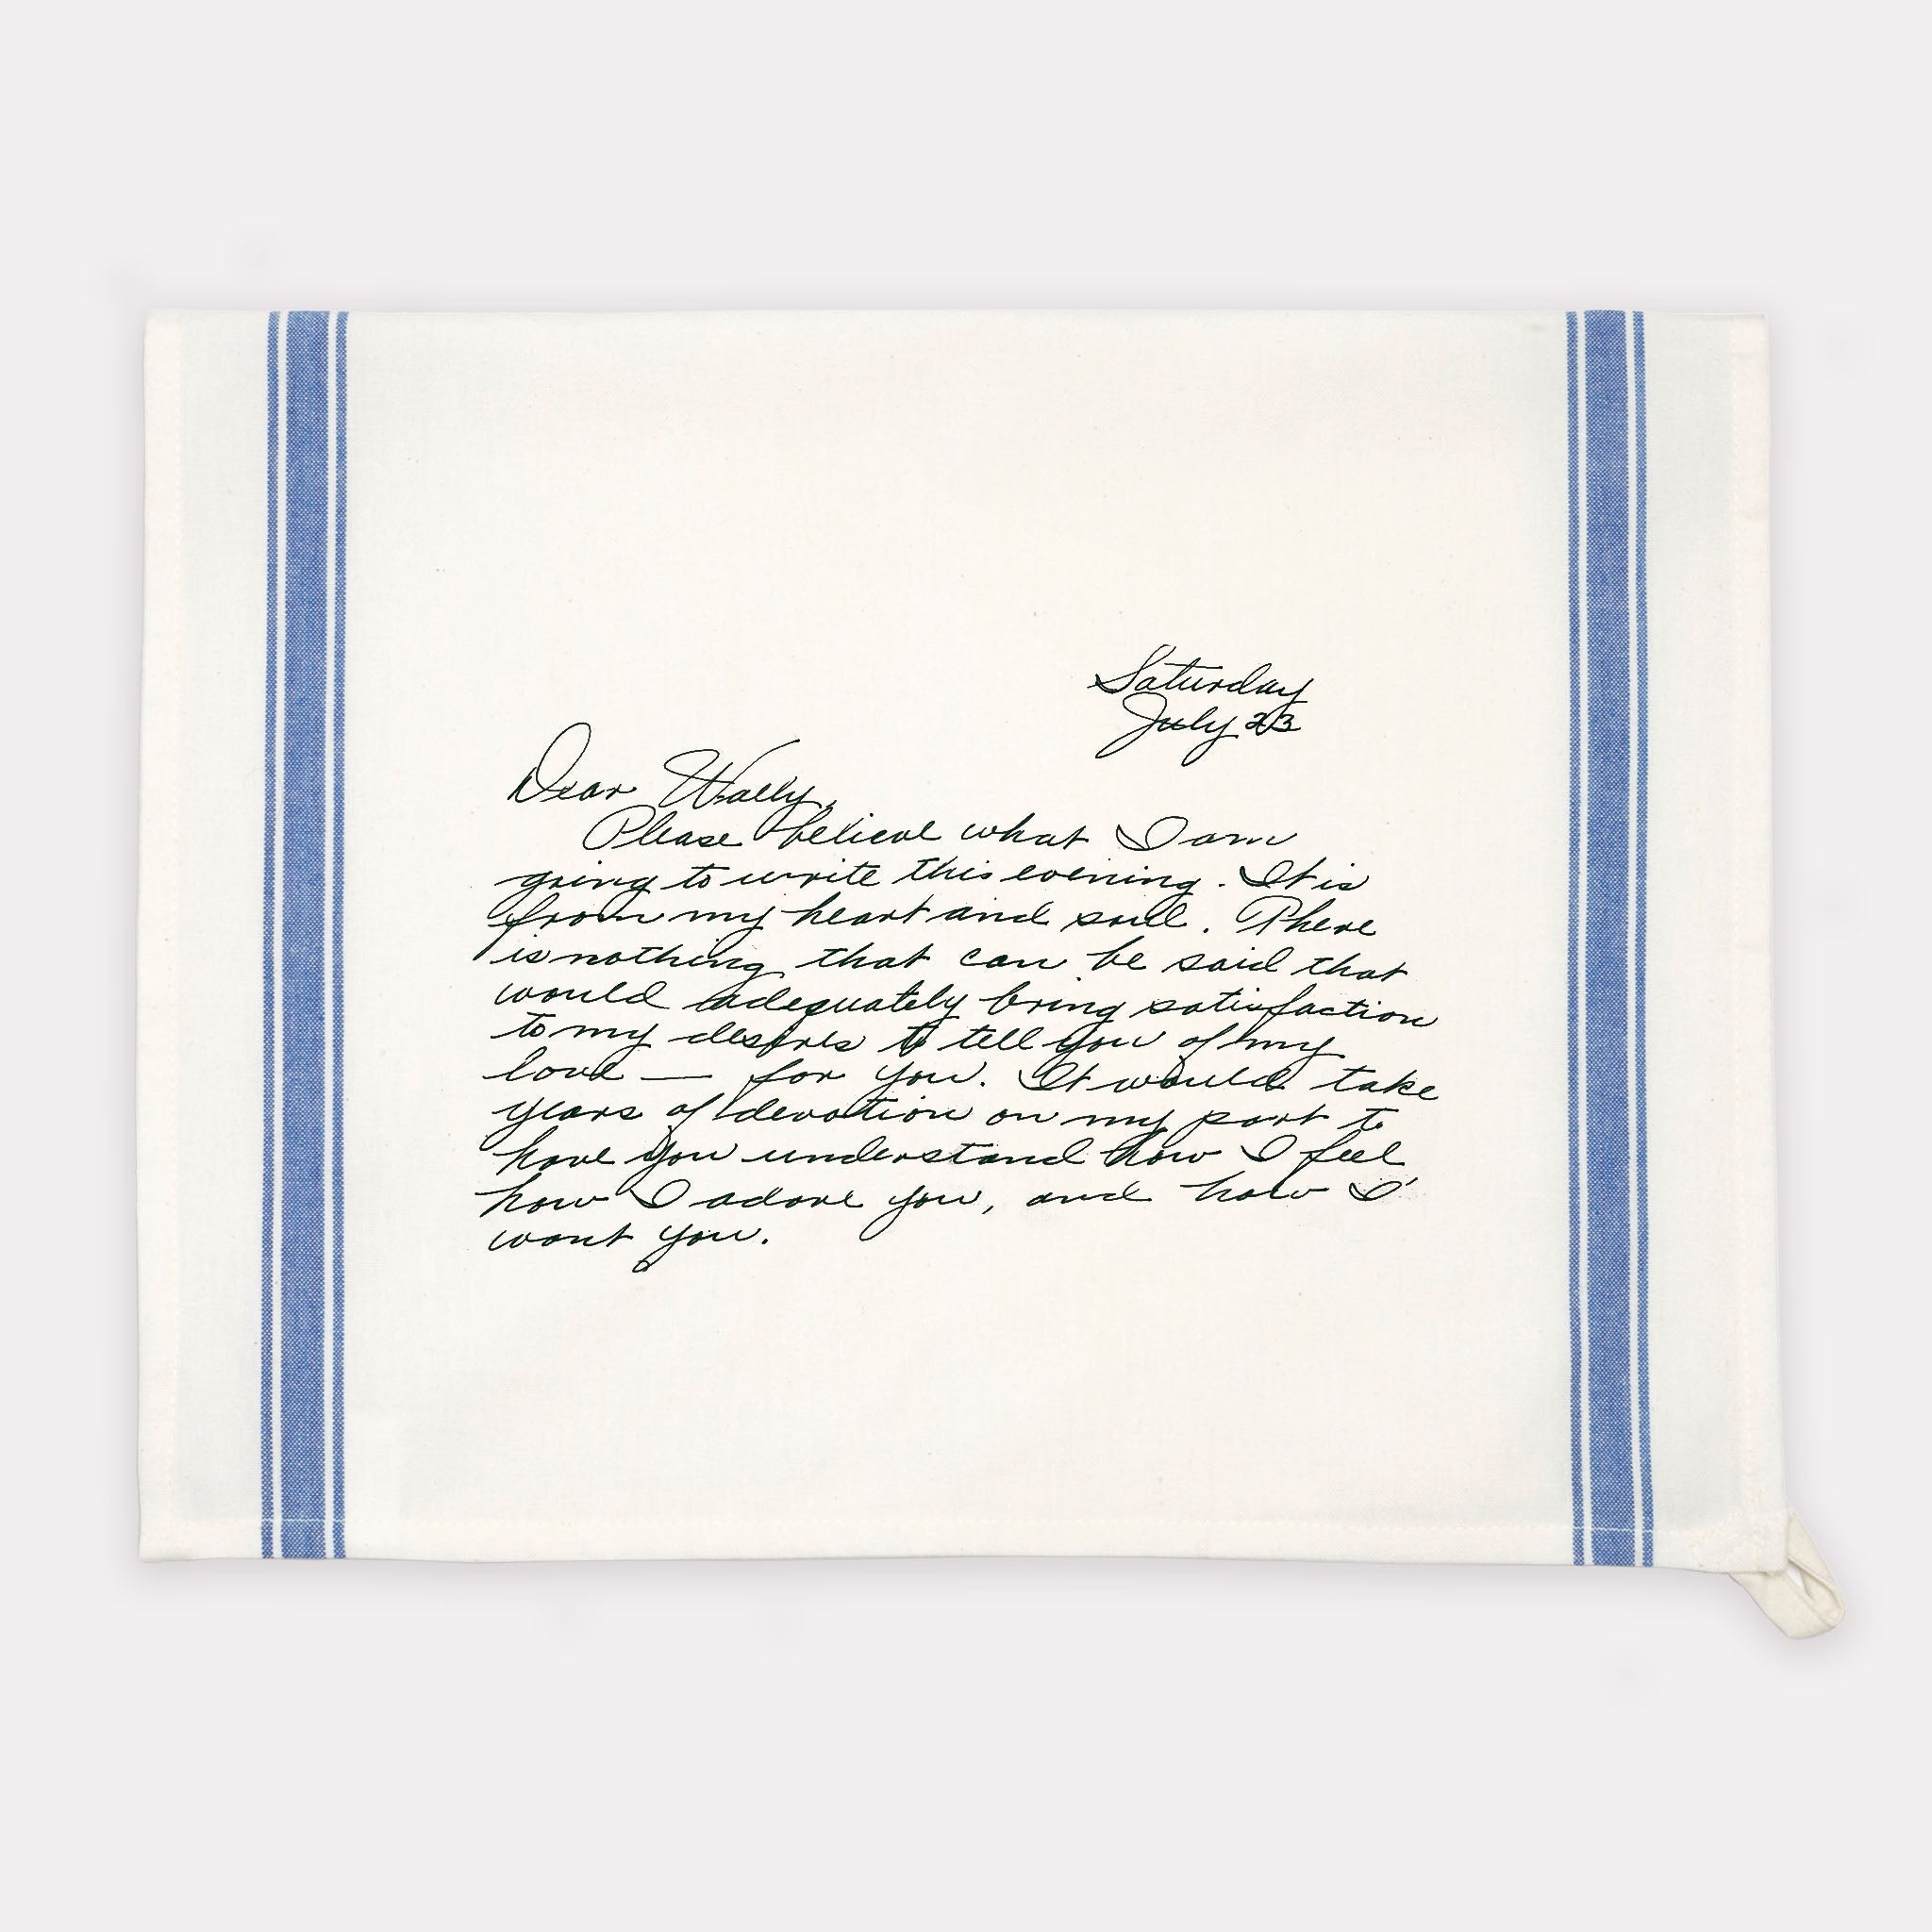 Saturday
July 23
Dear Wally,
Please believe what I am
going to write this evening. It is
from my heart and soul. There
is nothing that can be said that
would adequately bring satisfaction
to my desires to tell you of my
love — for you. It would take
years of devotion on my part to
have you understand how I feel
how I adore you, and how I
want you.